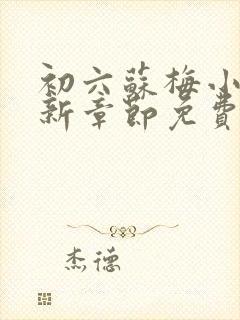 初六蘇梅小
新章節免費
杰德